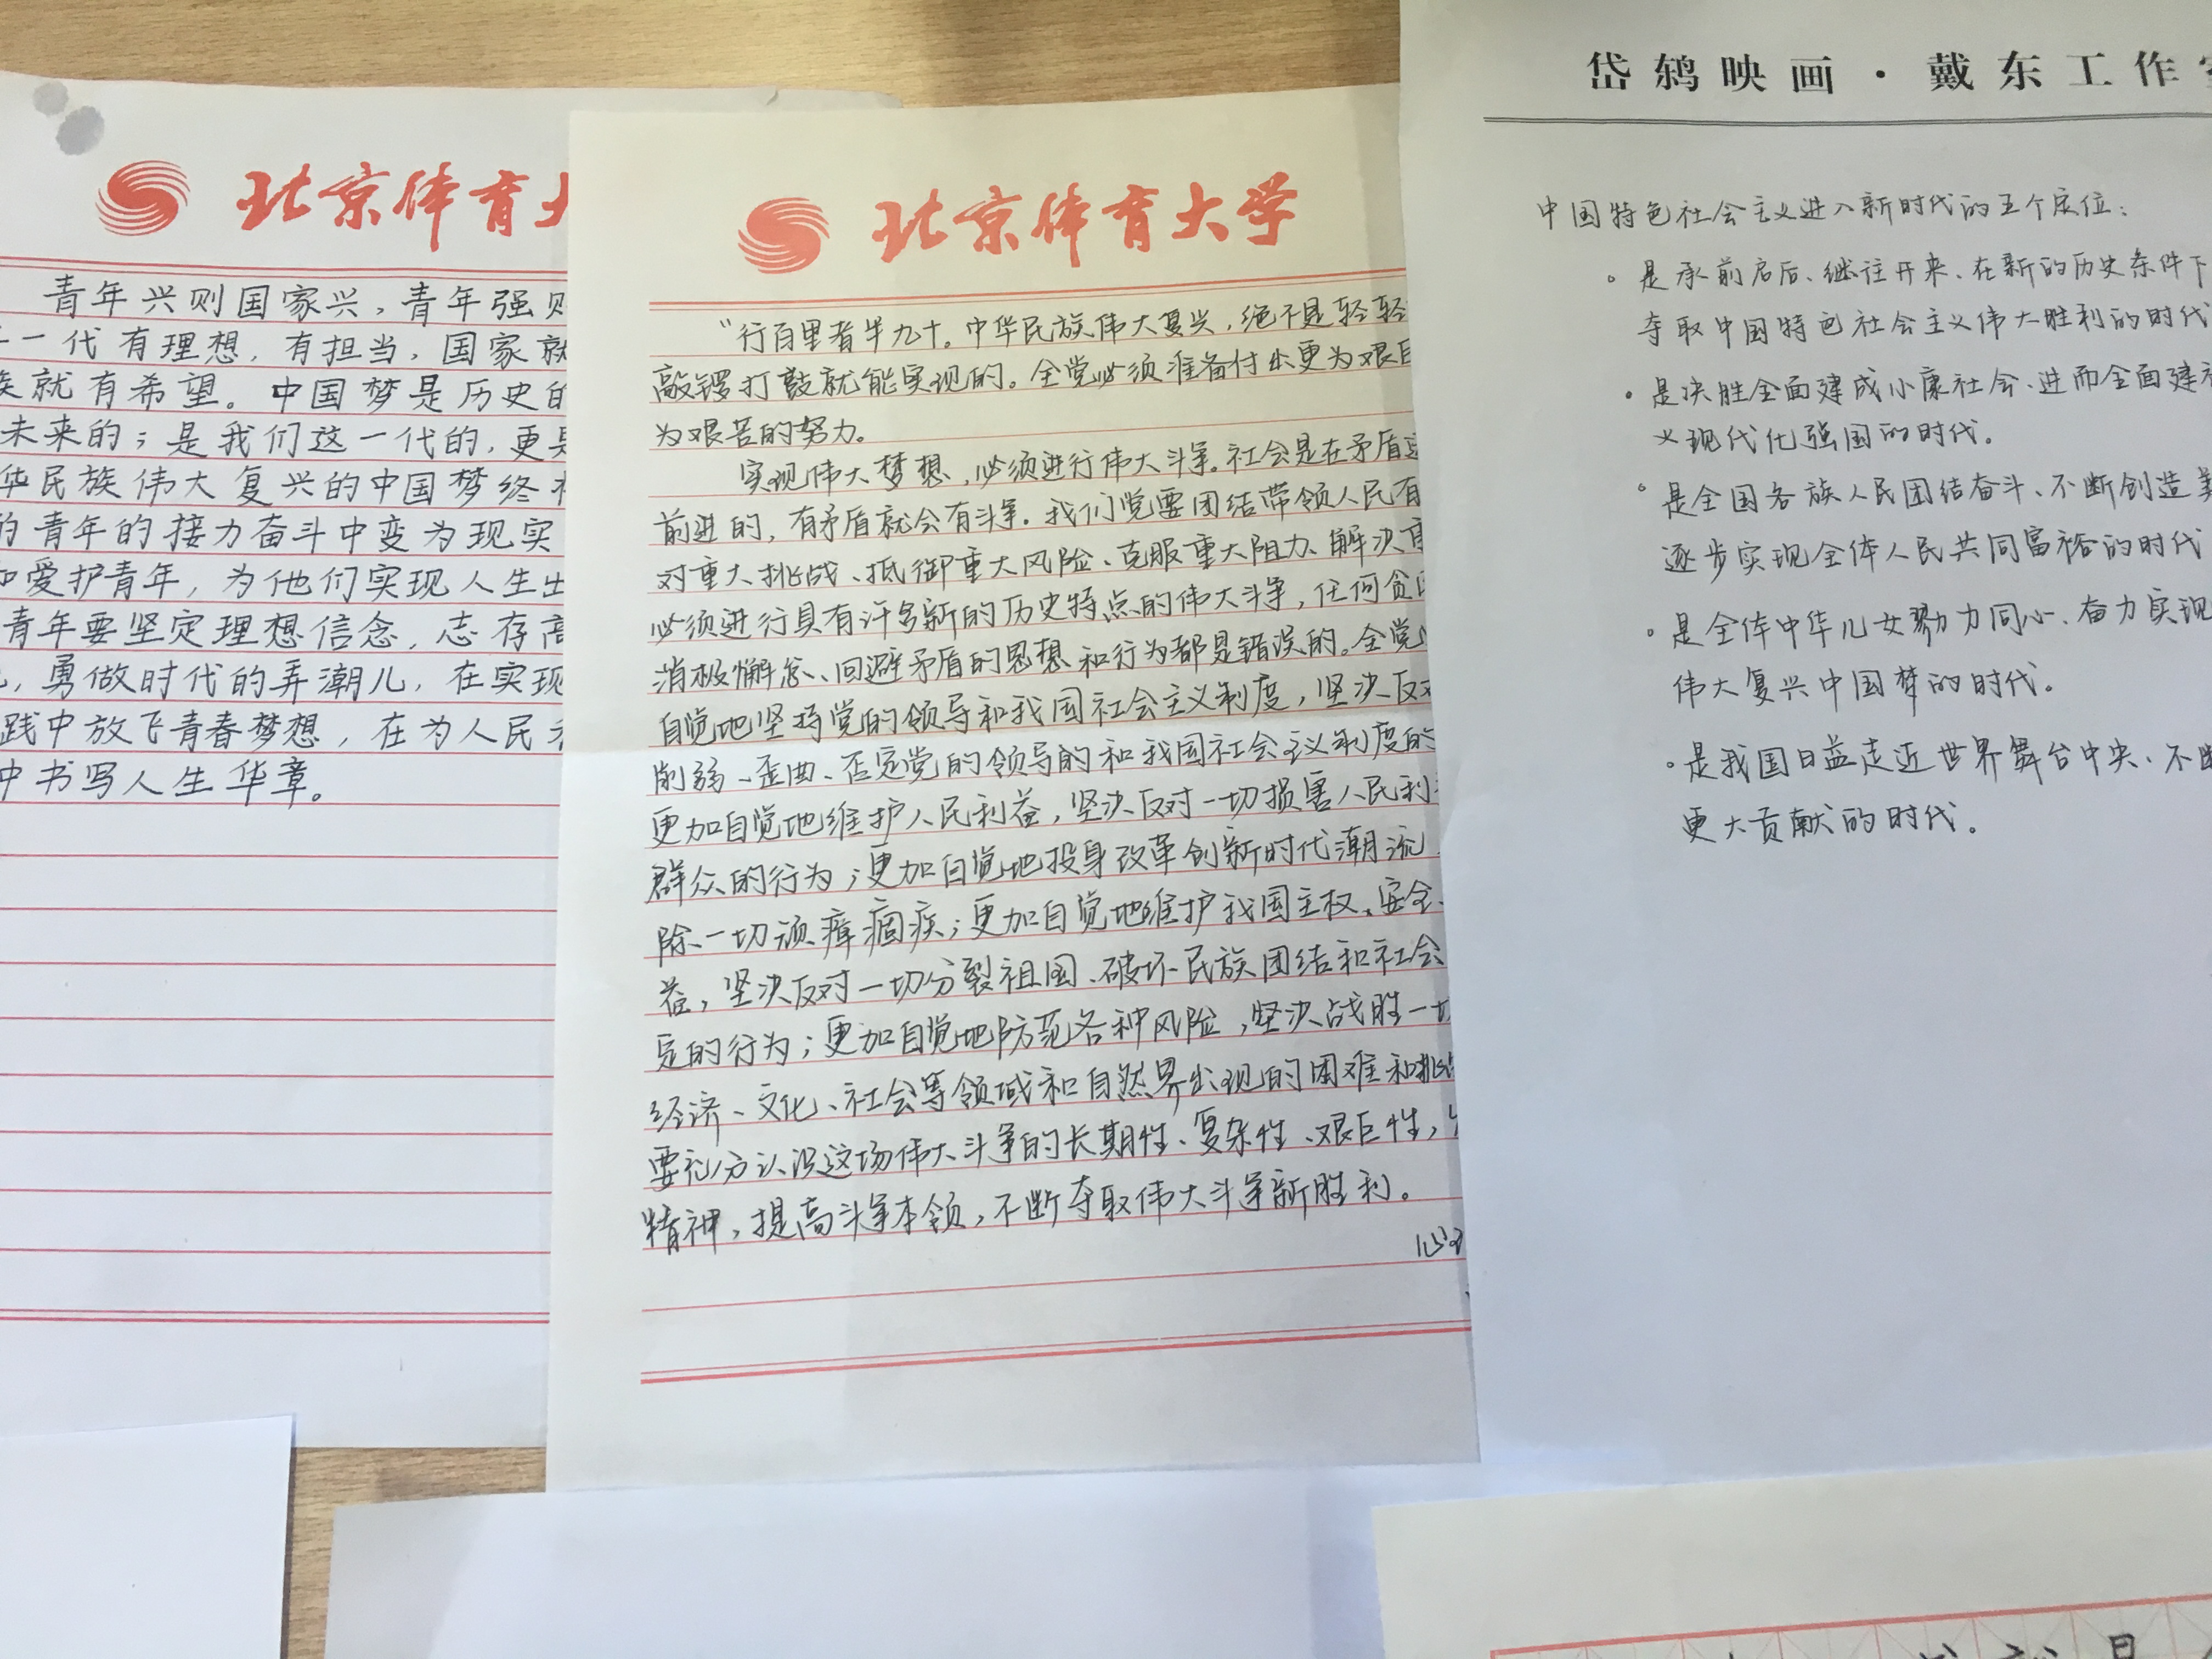 北京体育大
青年兴则国家兴，青年强则
一代有理想，有担当，国家就
族就有希望。中国梦是历史的
未来的；是我们这一代的，更是
华民族伟大复兴的中国梦终将
的青年的接力奋斗中变为现实
和爱护青年，为他们实现人生出
青年要坚定理想信念，志存高
，勇做时代的弄潮儿，在实现
践中放飞青春梦想，在为人民
中书写人生华章。
北京体育大学
“行百里者半九十。中华民族伟大复兴，绝不是轻轻
敲锣打鼓就能实现的。全党必须准备付出更为艰巨
为艰苦的努力。
实现伟大梦想，必须进行伟大斗争。社会是在矛盾运
前进的，有矛盾就会有斗争。我们党要团结带领人民有
对重大挑战、抵御重大风险、克服重大阻力、解决重
必须进行具有许多新的历史特点的伟大斗争，任何贪图
消极懈怠、回避矛盾的思想和行为都是错误的。全党
自觉地坚持党的领导和我国社会主义制度，坚决反对
削弱、歪曲、否定党的领导的和我国社会主义制度的
更加自觉地维护人民利益，坚决反对一切损害人民利
群众的行为；更加自觉地投身改革创新时代潮流
除一切顽瘴痼疾；更加自觉地维护我国主权、安全、
益，坚决反对一切分裂祖国、破坏民族团结和社会
定的行为；更加自觉地防范各种风险，坚决战胜一切
经济、文化、社会等领域和自然界出现的困难和挑战
要充分认识这场伟大斗争的长期性、复杂性、艰巨性，
精神，提高斗争本领，不断夺取伟大斗争新胜利。
岱鸫映画·戴东工作室
中国特色社会主义进入新时代的五个定位：
。是承前启后、继往开来、在新的历史条件下
夺取中国特色社会主义伟大胜利的时代
·是决胜全面建成小康社会、进而全面建社
义现代化强国的时代。
。是全国各族人民团结奋斗、不断创造美
逐步实现全体人民共同富裕的时代
。是全体中华儿女勠力同心、奋力实现
伟大复兴中国梦的时代。
·是我国日益走近世界舞台中央、不断
更大贡献的时代。